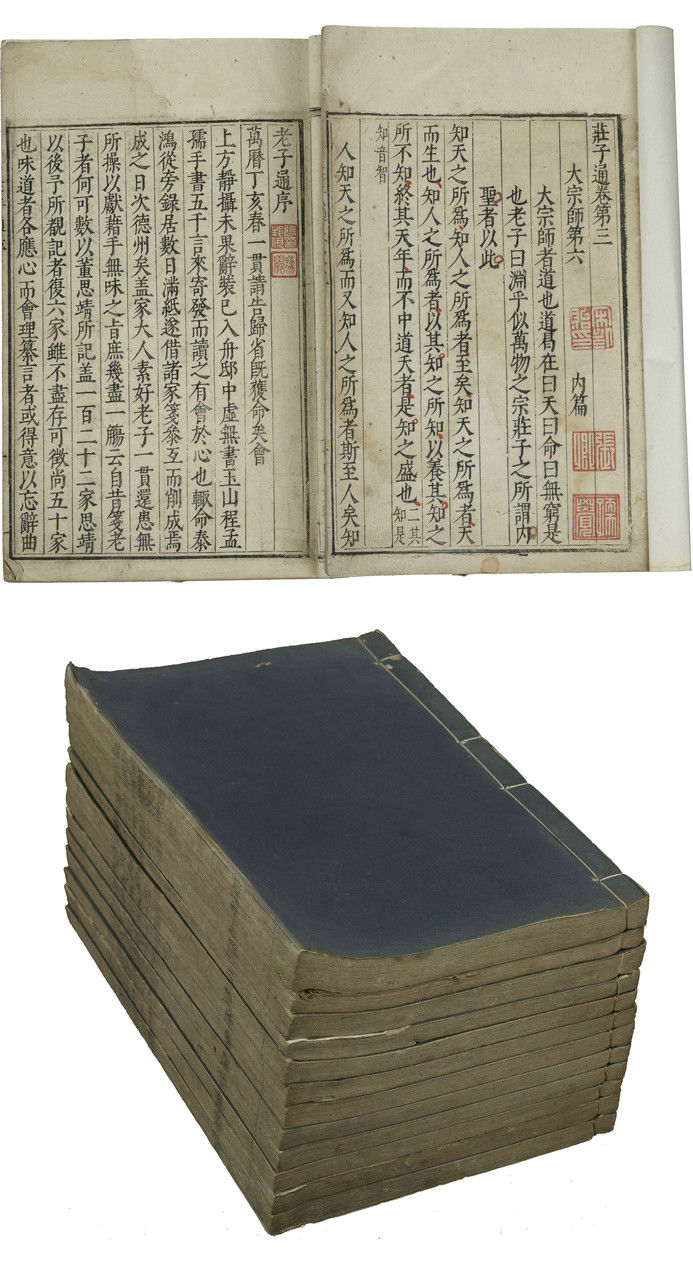 莊子通卷第三
大宗師第六　內篇
大宗師者道也道曷在曰天曰命曰無窮是
也老子曰淵乎似萬物之宗莊子之所謂內
聖者以此
知天之所爲知人之所爲者至矣知天之所爲者天
而生也知人之所爲者以其知之所知以養其知之
所不知終其天年而不中道夭者是知之盛也二其知是
知音智
人知天之所爲而又知人之所爲者斯至人矣知
老子通序
萬曆丁亥春一貫請告歸省既獲命矣會
上方靜攝未果辭裝已入舟邸中虛無書玉山程孟
孺手書五千言來寄發而讀之有會於心也輒命泰
鴻從旁錄居數日滿紙遂借諸家箋參互而削成焉
成之日次德州矣盖家大人素好老子一貫還患無
所操以獻藉手無味之旨庶幾盡一觴云自昔箋老
子者何可數以董思靖所記盖一百二十二家思靖
以後予所覩記者復六家雖不盡存可徵尚五十家
也味道者各應心而會理纂言者或得意以忘辭曲